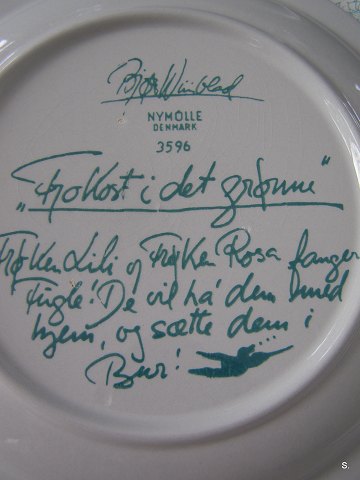 Bjørn Wiinblad
NYMÖLLE
DENMARK
3596
"Frokost i det grønne"
Frøken Lili og Frøken Rosa fanger
fugle! De vil ha' dem med
hjem, og sætte dem i
Bur!
S.